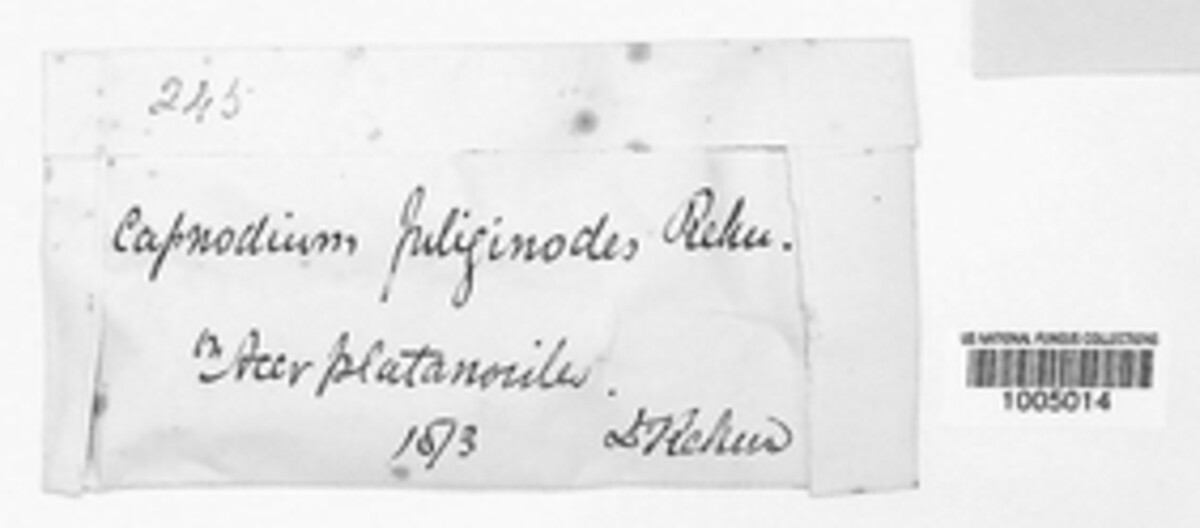 245
Capnodium fuliginodes Rehm.
in Acer platanoides.
1873 Dr Rehm
US NATIONAL FUNGUS COLLECTIONS
1005014